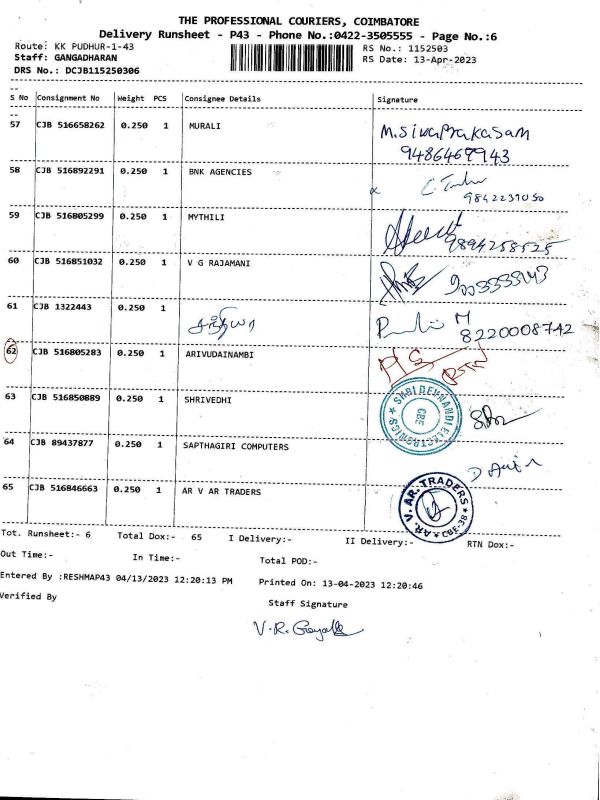 THE PROFESSIONAL COURIERS, COIMBATORE
Delivery Runsheet - P43 - Phone No.:0422-3505555 - Page No.:6
Route: KK PUDHUR-1-43 RS No.: 1152503
Staff: GANGADHARAN RS Date: 13-Apr-2023
DRS No.: DCJB115250306
S No Consignment No Weight PCS Consignee Details Signature
57 CJB 516658262 0.250 1 MURALI M.SivaPrakasam
9486469943
58 CJB 516892291 0.250 1 BNK AGENCIES
9842239050
59 CJB 516805299 0.250 1 MYTHILI 9894258525
60 CJB 516851032 0.250 1 V G RAJAMANI
61 CJB 1322443 0.250 1 சத்யா M
8220008742
62 CJB 516805283 0.250 1 ARIVUDAINAMBI P/S
RTN
63 CJB 516850889 0.250 1 SHRIVEDHI ELECTRONICS CBE
64 CJB 89437877 0.250 1 SAPTHAGIRI COMPUTERS
65 CJB 516846663 0.250 1 AR V AR TRADERS AR. V. AR. TRADERS CBE-38
Tot. Runsheet:- 6 Total Dox:- 65 I Delivery:- II Delivery:- RTN Dox:-
Out Time:- In Time:- Total POD:-
Entered By :RESHMAP43 04/13/2023 12:20:13 PM Printed On: 13-04-2023 12:20:46
Verified By Staff Signature